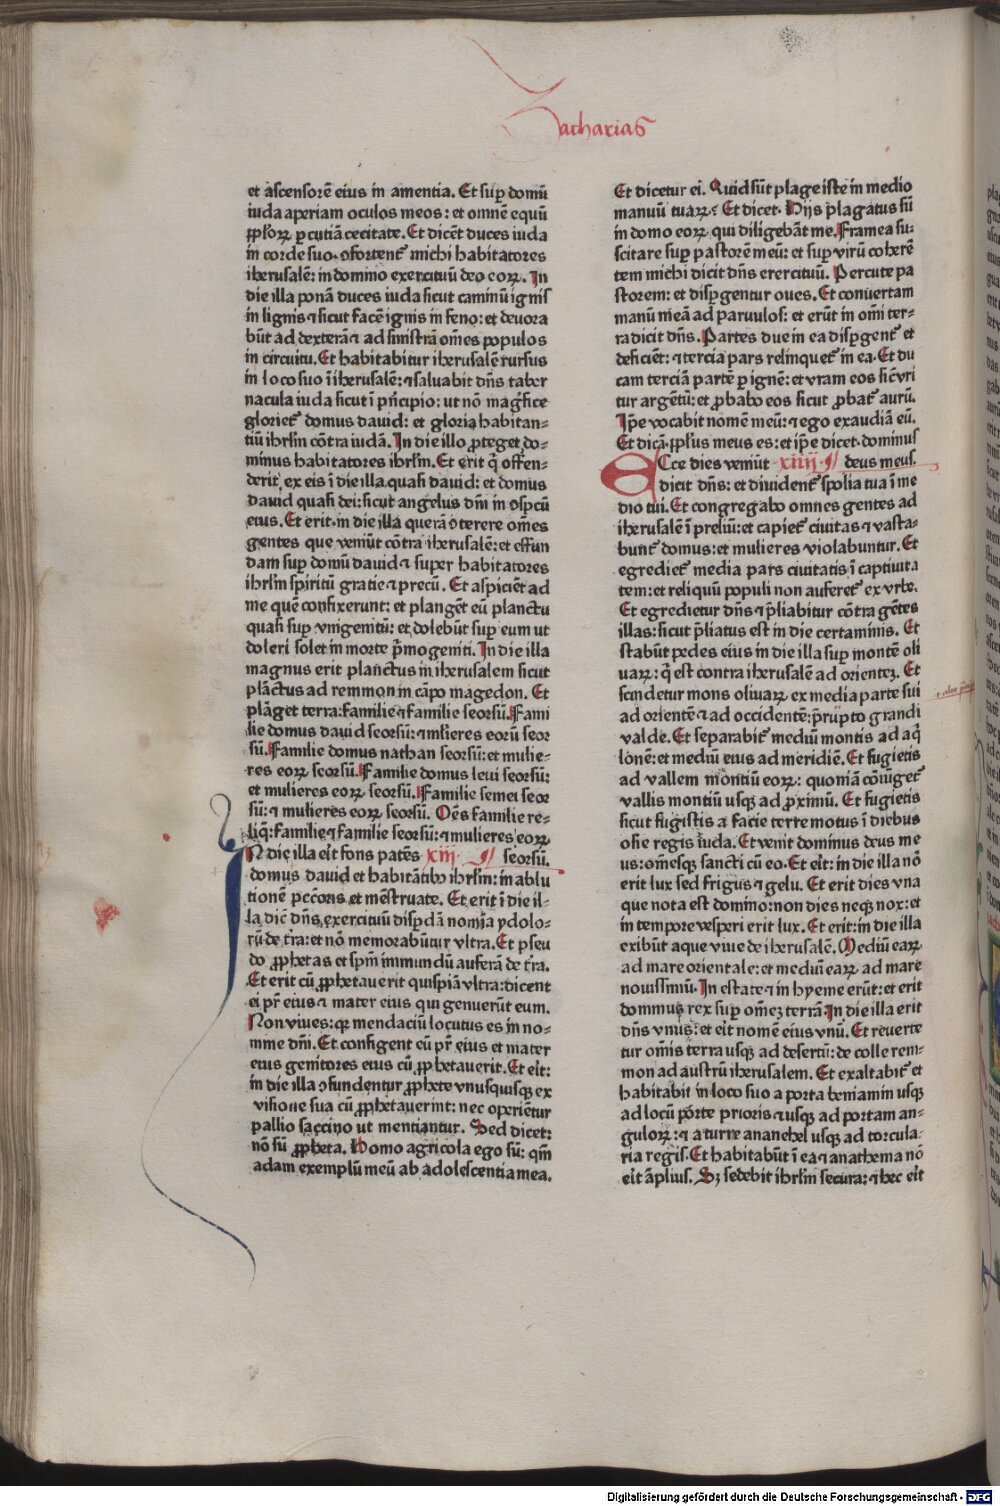 Zacharias
et ascensorē eius in amentia. Et sup domū
iuda aperiam oculos meos: et omnē equū
pplorꝝ pcutiā cecitate. Et dicēt duces iuda
in corde suo. ꝯfortent᷑ michi habitatores
iherusalē: in domino exercituū deo eorꝝ. In
die illa ponā duces iuda sicut caminū ignis
in lignis ⁊ sicut facē ignis in feno: et deuora
būt ad dexterā ⁊ ad sinistrā om̄es populos
in circuitu. Et habitabitur iherusalē rursus
in loco suo ī iherusalē: ⁊ saluabit dn̄s taber
nacula iuda sicut ī pn̄cipio: ut nō mag̃fice
gloriet᷑ domus dauid: et gloria habitan⸗
tiū ihrlm̄ cōtra iudā. In die illo ꝓteget do⸗
minus habitatores ihrlm̄. Et erit q̄ offen⸗
derit ex eis ī die illa. quasi dauid: et domus
dauid quasi dei: sicut angelus dn̄i in ꝯspcū
eius. Et erit in die illa querā ꝯterere om̄es
gentes que veniūt cōtra iherusalē: et effun
dam sup domū dauid ⁊ super habitatores
ihrlm̄ spiritū gratie ⁊ precū. Et aspiciēt ad
me quē confixerunt: et plangēt eū planctu
quasi sup vnigenitū: et dolebūt sup eum ut
doleri solet in morte p̄mogeniti. In die illa
magnus erit planctus in iherusalem sicut
plāctus ad remmon in cāpo magedon. Et
plāget terra: familie ⁊ familie seorsū. Fami
lie domus dauid seorsū: ⁊ mlieres eorū seor
sū. Familie domus nathan seorsū: et mulie⸗
res eorꝝ seorsū. Familie domus leui seorsū:
et mulieres eorꝝ seorsū. Familie semei seor
sū: ⁊ mulieres eorꝝ seorsū. Oēs familie re⸗
liq̄: familie ⁊ familie seorsū: ⁊ mulieres eorꝝ
IN die illa eīt fons patēs xiij. seorsū.
domus dauid et habitātibꝯ ihrlm̄: in ablu
tionē pccōris et mēstruate. Et erit ī die il⸗
la dic̄ dn̄s exercituū dispdā nomīa ydolo⸗
rū de tr̄a: et nō memorabūtur vltra. Et pseu
do ꝓphetas et spm̄ immundū auferā de tr̄a.
Et erit cū ꝓphetauerit quispiā vltra: dicent
ei pr̄ eius ⁊ mater eius qui genuerūt eum.
Non viues: qꝛ mendaciū locutus es in no⸗
mine dn̄i. Et configent eū pr̄ eius et mater
eius genitores eius cū ꝓphetauerit. Et eīt:
in die illa ꝯfundentur ꝓphete vnusquisqꝫ ex
visione sua cū ꝓphetauerint: nec operiētur
pallio saccino ut mentiantur. Sed dicet:
nō sū ꝓpheta. Homo agricola ego sū: qm̄
adam exemplū meū ab adolescentia mea.
Et dicetur ei. Quid sūt plage iste in medio
manuū tuarꝝ? Et dicet. Hijs plagatus sū
in domo eorꝝ qui diligebāt me. Framea su⸗
scitare sup pastorē meū: et sup virū coherē
tem michi dicit dn̄s exercituū. Percute pa
storem: et dispgentur oues. Et conuertam
manū meā ad paruulos: et erūt in om̄i ter⸗
ra dicit dn̄s. Partes due in ea dispgent᷑ et
deficiēt: ⁊ tercia pars relinquet᷑ in ea. Et du
cam terciā partē p ignē: et vram eos sic̄ vri
tur argētū: et ꝓbabo eos sicut ꝓbat᷑ aurū.
Ip̄e vocabit nomē meū: ⁊ ego exaudiā eū.
Et dicā. pplus meus es: et ip̄e dicet. dominus
ECce dies veniūt xiiij. deus meus.
dicit dn̄s: et diuident᷑ spolia tua ī me
dio tui. Et congregabo omnes gentes ad
iherusalē ī preliū: et capiet᷑ ciuitas ⁊ vasta⸗
bunt᷑ domus: et mulieres violabuntur. Et
egrediet᷑ media pars ciuitatis ī captiuita
tem: et reliquū populi non auferet᷑ ex vrbe.
Et egredietur dn̄s ⁊ p̄liabitur cōtra gētes
illas: sicut p̄liatus est in die certaminis. Et
stabūt pedes eius in die illa sup montē oli
uarꝝ: q̄ est contra iherusalē ad orientez. Et
scindetur mons oliuarꝝ ex media parte sui
ad orientē ⁊ ad occidentē: p̄rupto grandi
valde. Et separabit᷑ mediū montis ad aq̇
lonē: et mediū eius ad meridiē. Et fugietis
ad vallem montiū eorꝝ: quoniā cōiūget᷑
vallis montiū usqꝫ ad ꝓximū. Et fugietis
sicut fugistis a facie terre motus ī diebus
osie regis iuda. Et veniet dominus deus me
us: om̄esqꝫ sancti cū eo. Et eīt: in die illa nō
erit lux sed frigus ⁊ gelu. Et erit dies vna
que nota est domino: non dies neqꝫ nox: et
in tempore vesperi erit lux. Et erit: in die illa
exibūt aque viue de iherusalē. Mediū earꝝ
ad mare orientale: et mediū earꝝ ad mare
nouissimū. In estate ⁊ in hyeme erūt: et erit
dominus rex sup om̄ez terrā. In die illa erit
dn̄s vnus: et eīt nomē eius vnū. Et reuerte
tur om̄is terra usqꝫ ad desertū: de colle rem⸗
mon ad austrū iherusalem. Et exaltabit᷑ et
habitabit in loco suo a porta beniamin usqꝫ
ad locū porte prioris ⁊ usqꝫ ad portam an⸗
gulorꝝ: ⁊ a turre ananehel usqꝫ ad torcula⸗
ria regis. Et habitabūt ī ea ⁊ anathema nō
eīt āplius. Sꝫ sedebit ihrlm̄ secura: ⁊ hec eīt
Digitalisierung gefördert durch die Deutsche Forschungsgemeinschaft - DFG